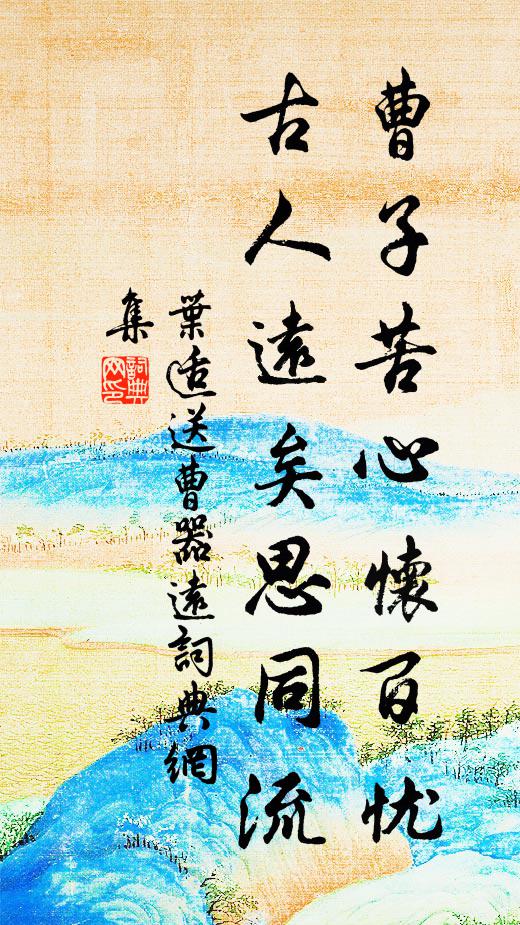 曹子苦心懷百忧
古人遠矣思同流
葉适送曹器遠詞典網
集
詞典
网印